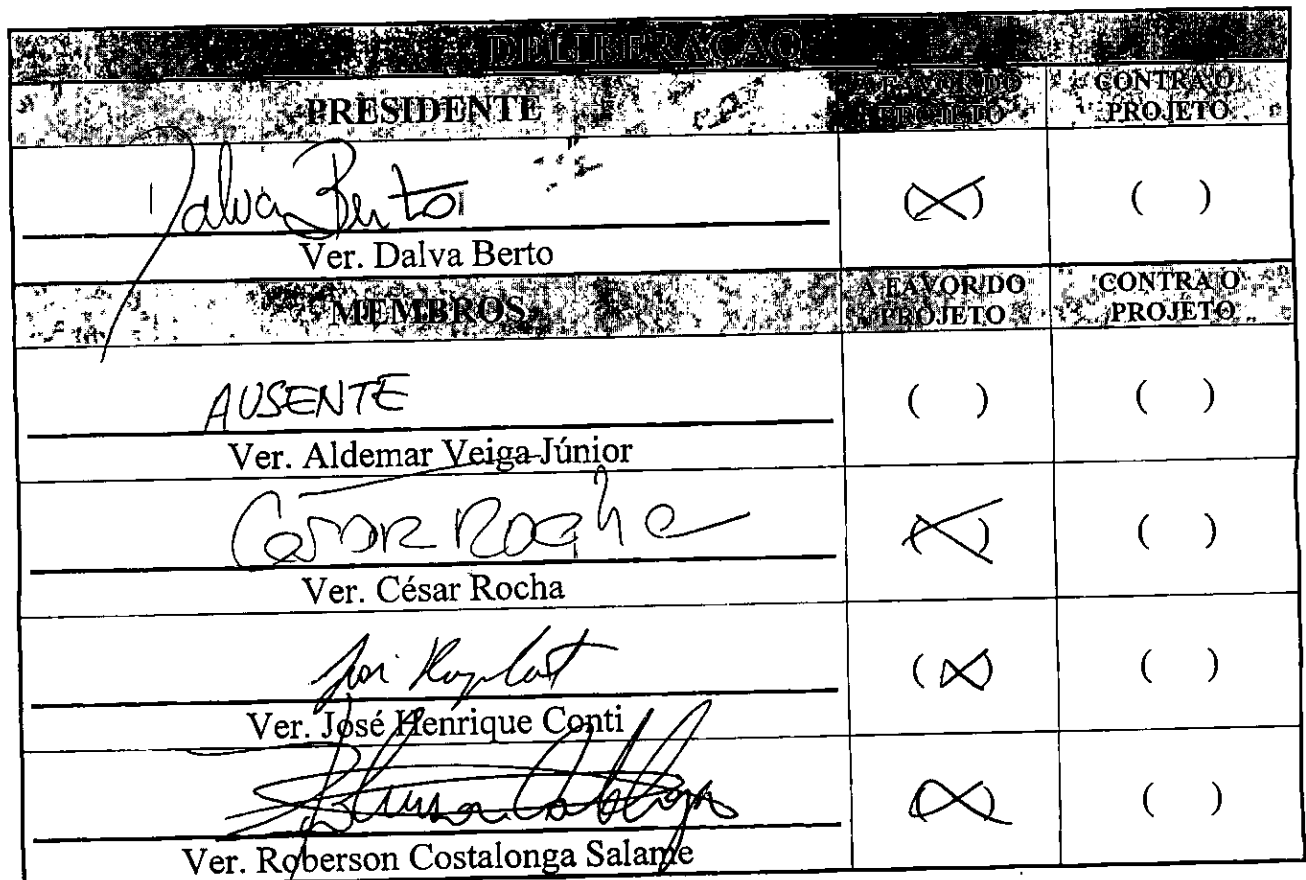 DELIBERAÇÃO
PRESIDENTE A FAVOR DO PROJETO CONTRA O PROJETO
Dalva Berto (X) ( )
Ver. Dalva Berto
MEMBROS A FAVOR DO PROJETO CONTRA O PROJETO
AUSENTE ( ) ( )
Ver. Aldemar Veiga Júnior
César Rocha (X) ( )
Ver. César Rocha
(X) ( )
Ver. José Henrique Conti
(X) ( )
Ver. Roberson Costalonga Salame